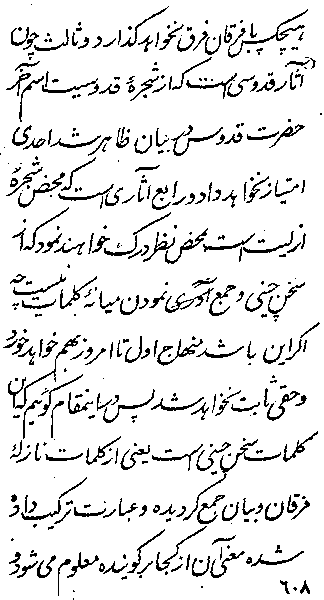 هیچیک با فرقان فرق نخواهد گذارد و ثالث چون
آثار قدوسی است که از شجرهٔ قدوسیت اسم آخر
حضرت قدوس در بیان ظاهر شد احدی
امتیاز نخواهد داد و رابع آثاری است که محض شجرهٔ
ازلیت است بمحض نظر درک خواهند نمود که از
سخن چینی و جمع آوری نمودن میانهٔ کلمات نیست چه
اگر این باشد منهاج اول تا امروز بهم خواهد خورد
و حقی ثابت نخواهد شد پس در اینمقام گوئیم که این
کلمات سخن چینی است یعنی از کلمات نازلهٔ
فرقان و بیان جمع گردیده و عبارت ترکیب داده
شده معنی آن از کجا بر گوینده معلوم می شود و
٦٠٨